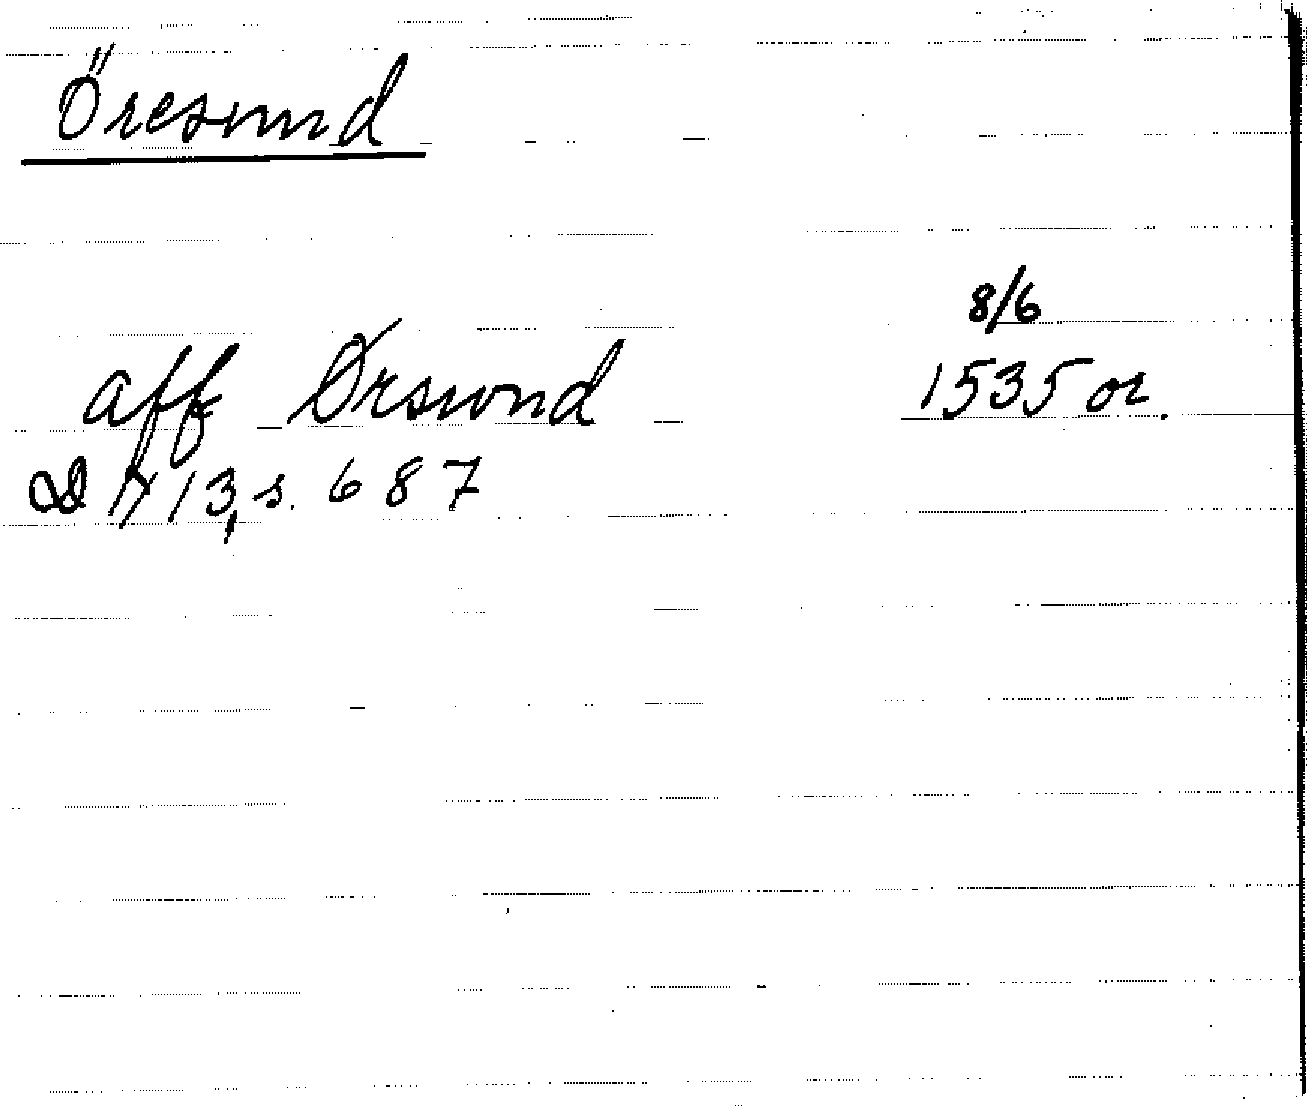 Öresund
8/6
aff Ørswnd 1535 or.
DN 13, s. 687